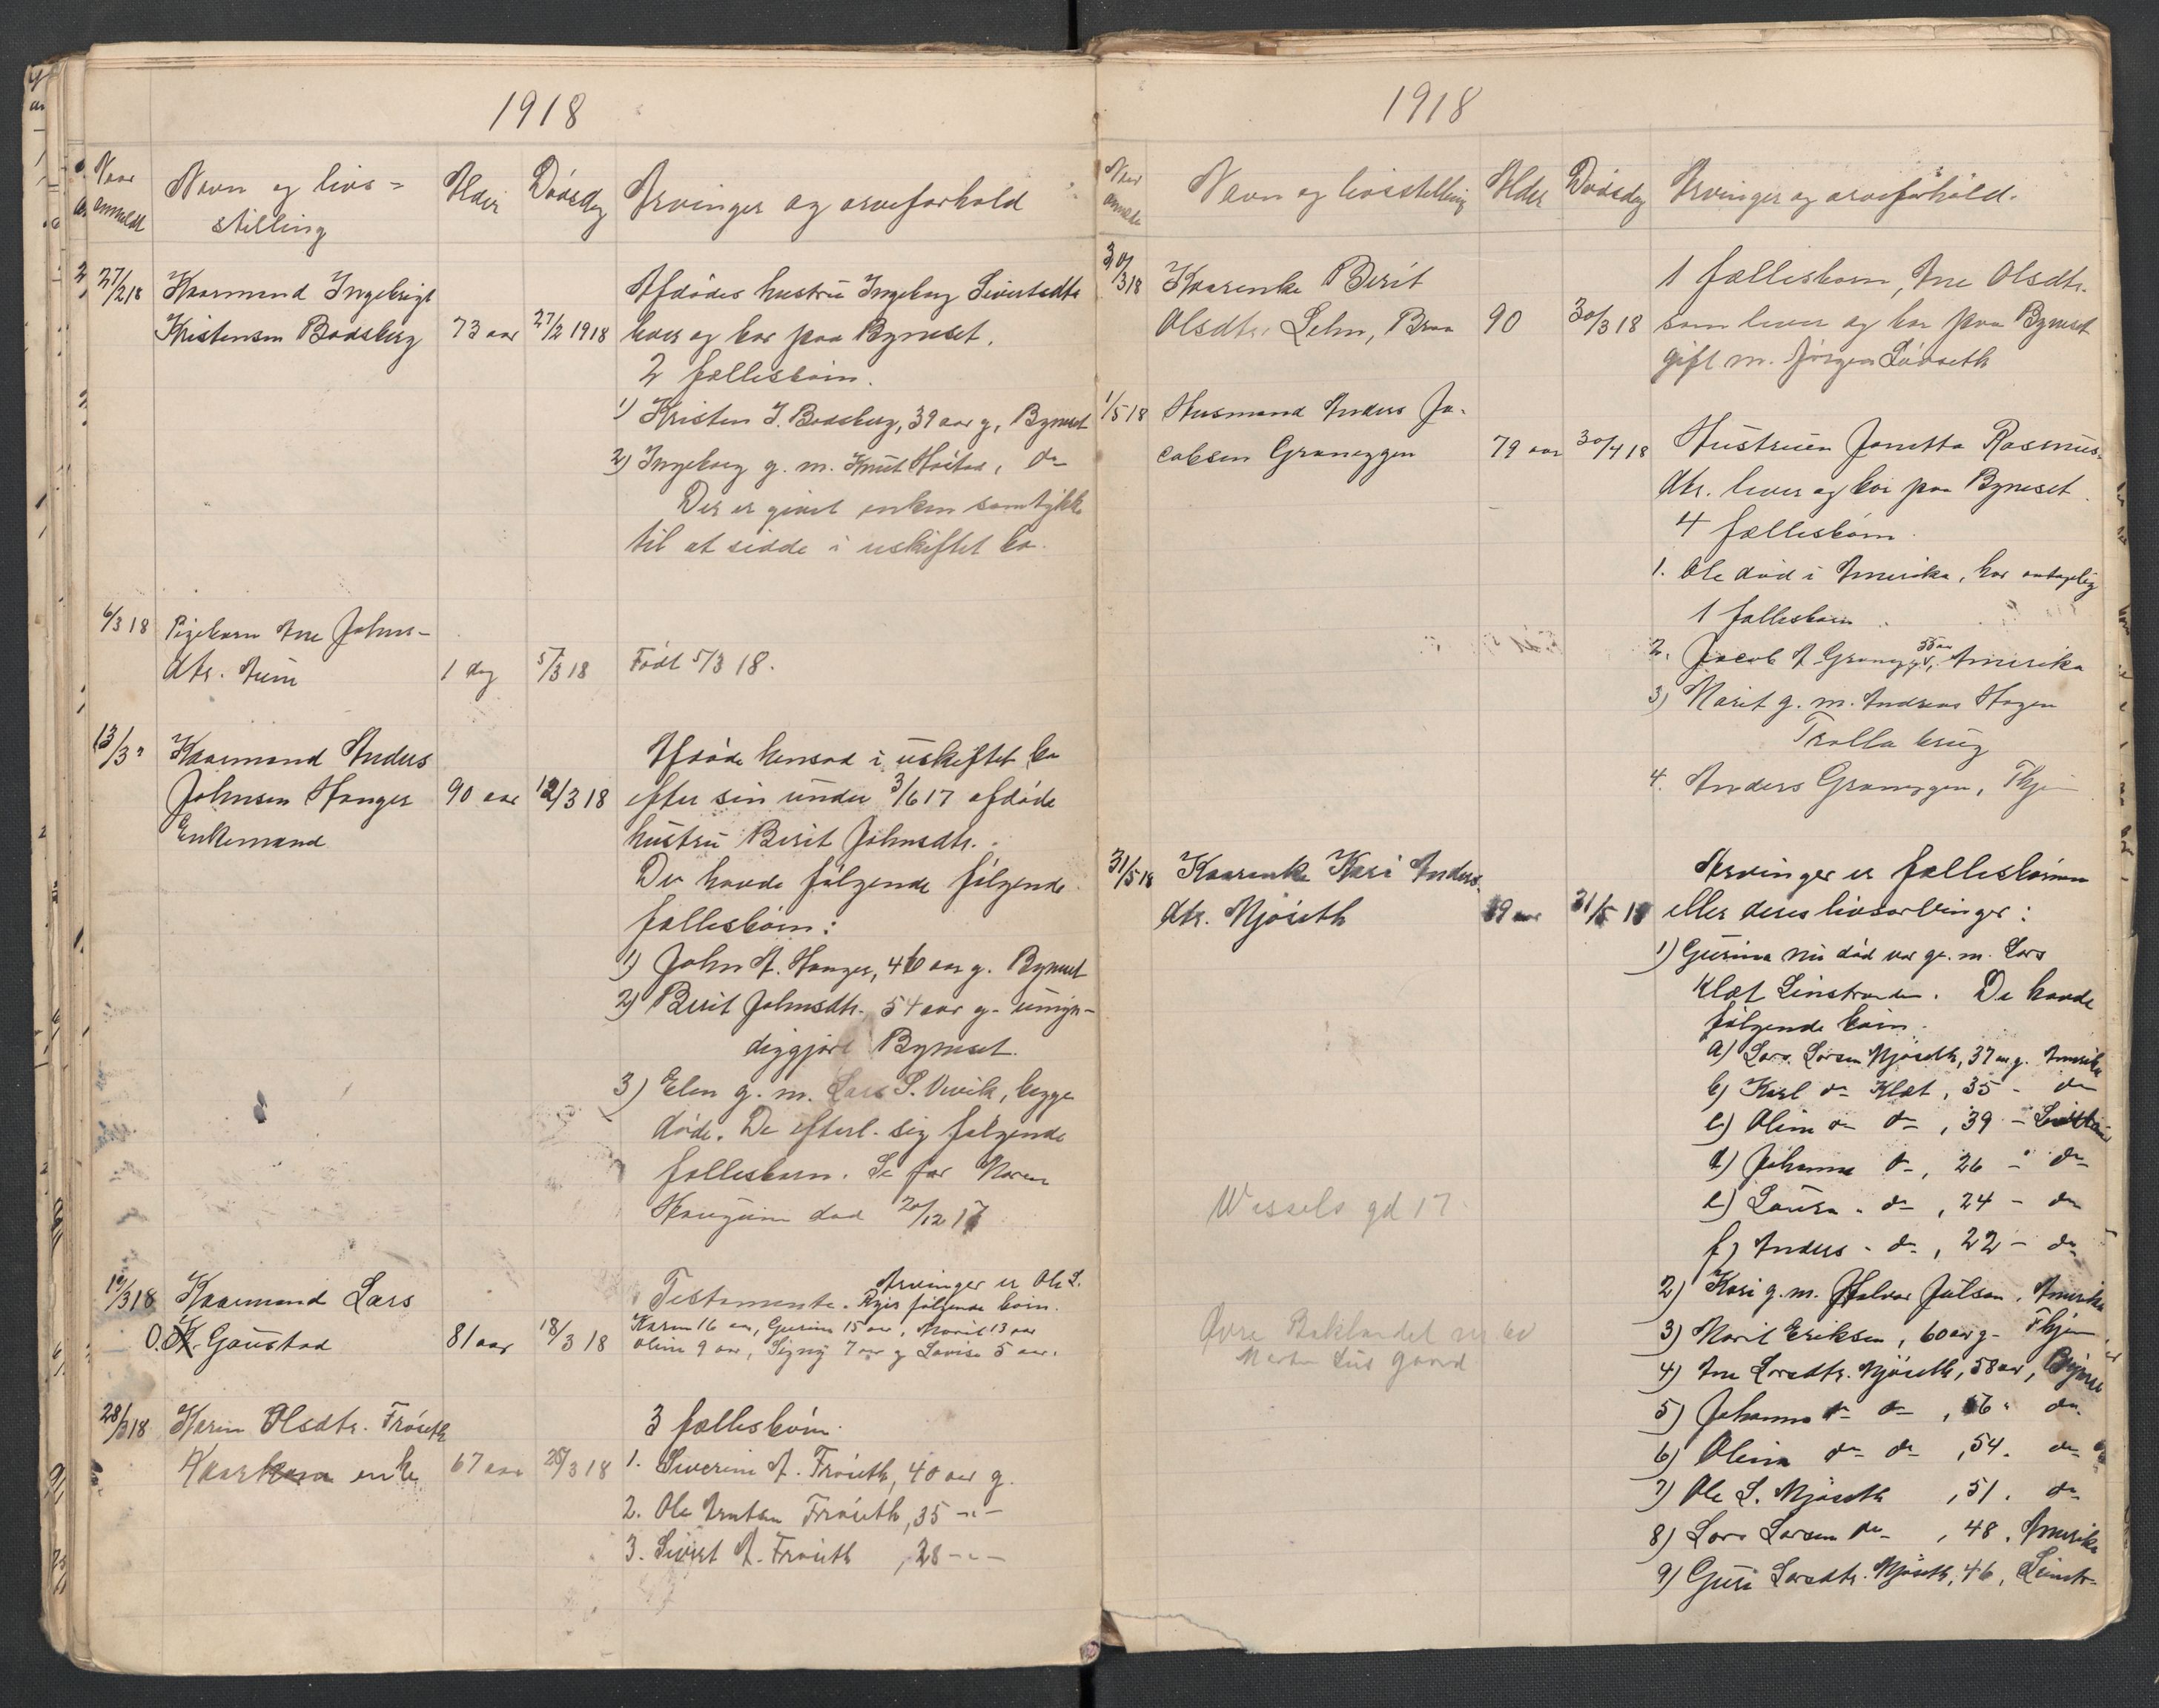 1918
Naar anmeldt
Navn og livs=
stilling
Alder
Dødsdag
Arvinger og arveforhold
27/2 18
Kaarmand Ingebrigt
Kristensen Bodsberg
73 aar
27/2 1918
Afdødes hustru Ingeborg Sivertsdtr
lever og bor paa Byneset.
2 fællesbørn.
1) Kristen I. Bodsberg, 39 aar g, Byneset
2) Ingeborg g. m. Knut do
Der er givet enken samtykke
til at sidde i uskiftet bo.
6/3 18
Pigebarn Ane Johns-
dtr.
1 dag
5/3 18
Født 5/3 18.
13/3 "
Kaarmand Anders
Johnsen Hanger
Enkemand
90 aar
12/3 18
Afdøde hensad i uskiftet bo
efter sin under 3/6 17 afdøde
hustru Berit Johnsdtr.
De havde følgende følgende
fællesbørn:
1) John A. Hanger, 46 aar g. Byneset
2) Berit Johnsdtr. 54 aar g. umyn-
diggjort Byneset.
3) Elen g. m. Lars S. begge
døde. De efterl. sig følgende
fællesbarn. Se før Maren
død 20/12 17
19/3 18
Kaarmand Lars
O. Gaustad
81 aar
18/3 18
Testamente. Arvinger er Ole L.
følgende børn.
Karen 16 aar, Gurine 15 aar, Marit 13 aar
Oline 9 aar, Signy 7 aar g Lovise 5 aar.
28/3 18
Karen Olsdtr. Frøseth
Kaarkona enke
67 aar
28/3 18
3 fællesbørn.
1. Siverine A. Frøseth, 40 aar g.
2. Ole Arntsen Frøseth, 35 -"-
3. Sivert A. Frøseth, 28 -"-
1918
Naar anmeldt
Navn og livsstilling
Alder
Dødsdag
Arvinger og arveforhold.
30/3 18
Kaarenke Berit
Olsdtr. Lehn, Braa
90
30/3 18
1 fællesbarn, Ane Olsdtr.
som lever og bor paa Byneset
gift m. Jørgen Løvseth
1/5 18
Husmand Anders Ja-
cobsen Graneggen
79 aar
30/4 18
Hustruen Janetta Rasmus-
dtr. lever og bor paa Byneset.
4 fællesbørn.
1. Ole død i Amerika, har antagelig
1 fællesbarn
2. Jacob A. Graneggen, 55 aar, Amerika
3) Marit g. m. Andreas Hagen
Trolla brug
4. Anders Graneggen, Thjem
31/5 18
Kaarenke Kari Anders-
dtr. Mjøseth
89 aar
31/5 18
Arvinger er fællesbørnene
eller deres livsarvinger:
1) Gurina nu død var g. m. Lars
Klæt Leinstranden. De havde
følgende børn.
a) Lars Larsen Mjøseth, 37 aar g. Amerika
b) Karl do Klæt, 35 - do
c) Oline do do, 39 -
d) Johanna do, 26 - do
e) Laura - do, 24 - do
f) Anders - do, 22 - do
2) Kari g. m. Halvor Julson, Amerika
3) Marit Eriksen, 60 aar g. Thjem
4) Ane Larsdtr. Mjøseth, 58 aar, Byneset
5) Johanna do do, 56 " do
6) Olina do do, 54. do
7) Ole L. Mjøseth, 51. do
8) Lars Larsen do, 48, Amerika
9) Guri Larsdtr. Mjøseth, 46, Leinstr.
Wessels gd 17.
Øvre Baklandet nr 60
gaard